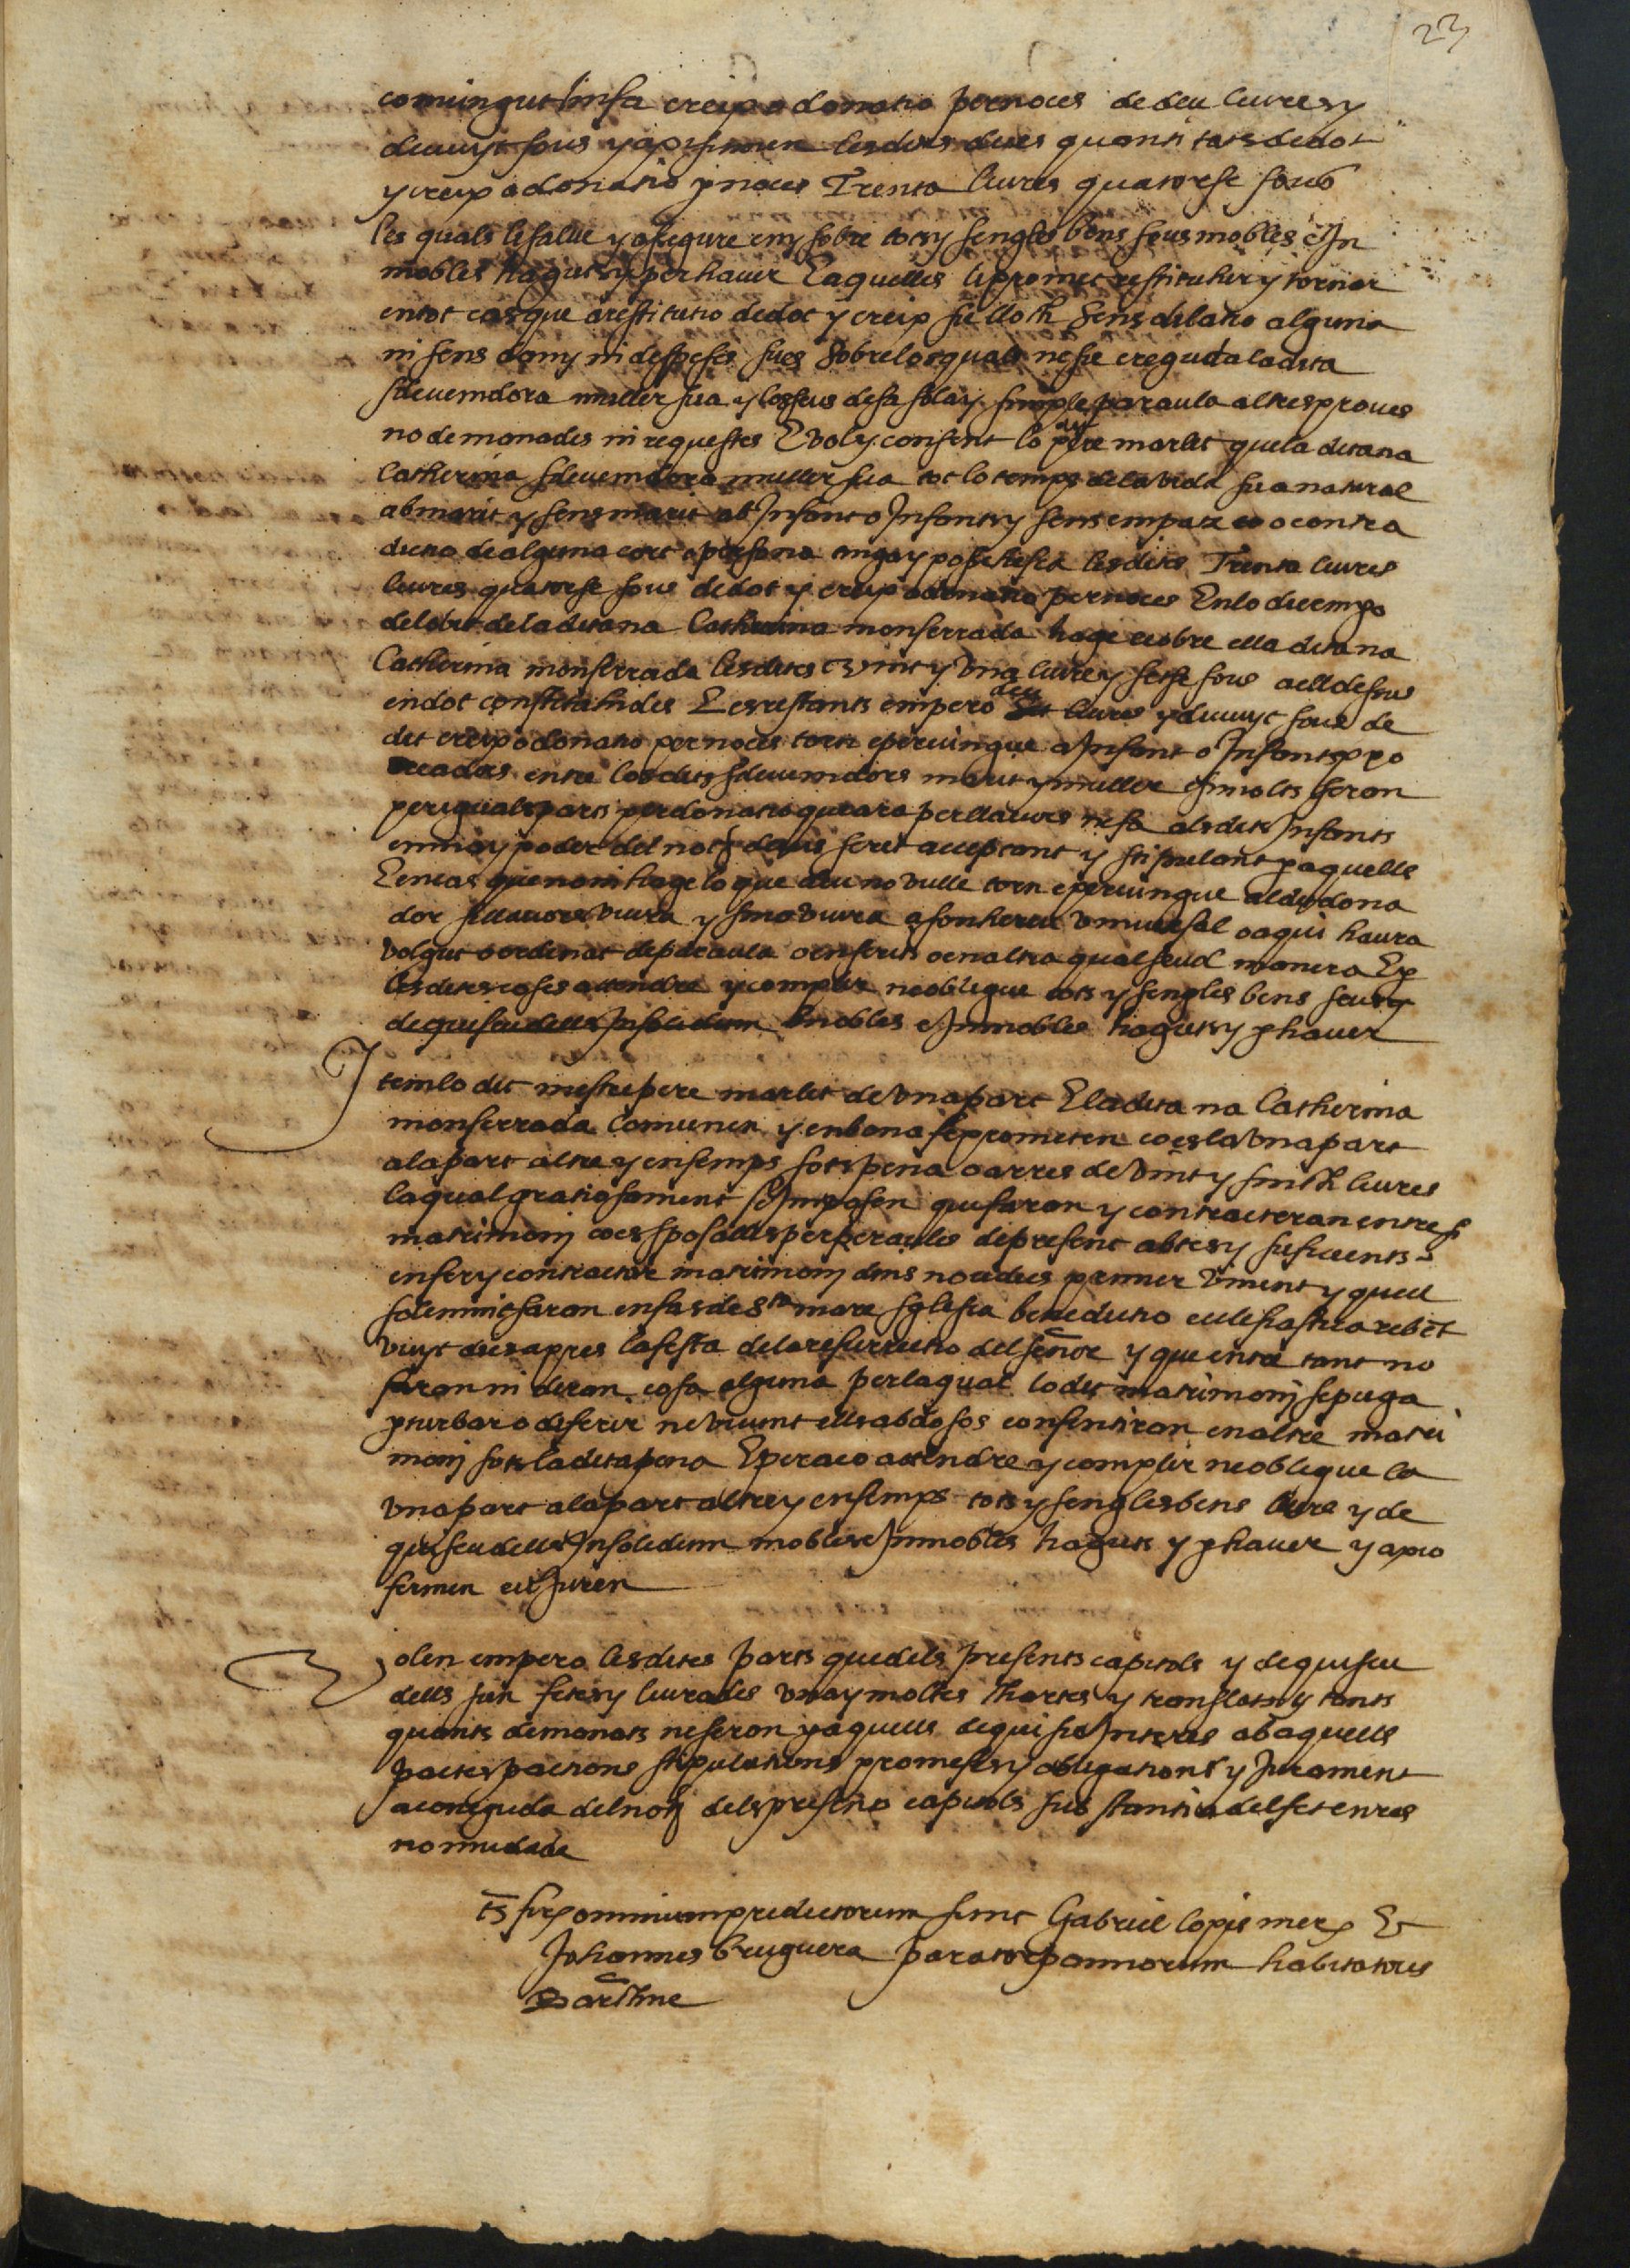 23
comvingut li n fa creix o donatio per noces de deu liures y
devuyt sous y axi sumen les dites dues quantitats de dot
y creix o donatio p noces Trenta liures quatorse sous
les quals li salve y asegure en y sobre tots y sengles bens seus mobles e In
mobles haguts y per haver E aquelles li promet restituhir y tornar
en tot cas que a restitutio de dot y creix sie lloch sens dilatio alguna
ni sens dany ni despeses sues Sobre los quals ne sie creguda la dita
sdevenidora muller sua y los seus de sa sola y simple paraula altres proves
no demanades ni requestes E vol y consent lo dit pere marlet que la dita na
Catherina sdevenidora muller sua tot lo temps de la vida sua natural
ab marit y sens marit ab Infant o Infants y sens empatx o contra
dictio de alguna cort o persona tinga y possehesca les dites Trenta liures
liures quatorse sous de dot y creix o donatio per noces En lo die empo
del obit de la dita na Catherina monserrada hage cobre ella dita na
Catherina monserrada les dites vint y una liure y setse sous a ell desus
en dot constituhides E es restants empero deu liures y devuyt sous de
dit creix o donatio per noces torn e pervingue a Infant o Infants p pro
creadors entre los dits sdevenidors marit y muller si molts seran
per iguals parts per donatio que ara per llavors ne fa als dits Infants
en ma y poder del not devall scrit acceptant y stipulant p aquells
E en cas que noni hage lo que deu no vulle torn e pervingue al dit dona
dor si llavors viura y si no viura a son hereu universal o a qui haura
volgut o ordenat de paraula o en scrits o en altra qualsevol manera E p
les dites coses attendre y complir ne oblique tots y sengles bens seus y
de quiscu dells Insolidum mobles e Immobles haguts y p haver
Item lo dit mestre pere marlet de una part E la dita na Catherina
monserrada Comvenen y en bona fe prometen co es la una part
a la part altre y ensemps sots pena o arres de vint y sinch liures
la qual gratiosament se Imposen que faran y contractaran entre si
matrimoni co es sposalles per peraules de present abtes y suficients
en fer y contractar matrimoni dins nou dies primer vinent y que ell
solemnitsaran en fas de sta mare sglesia benedictio ecclesiastica rebet
vuyt dies apres la festa de la resurrectio del señor y que entre tant no
faran ni diran cosa alguna per la qual lo dit matrimoni se puga
pturbar o deferir ne vivint ells abdosos consentiran en altre matri
moni sots la dita pena E per aco attendre y complir ne oblique la
una part a la part altre y ensemps tots y sengles bens llurs y de
quiscu dells Insolidum mobles e Immobles haguts y p haver y axi o
fermen e u Juren
Volen empero les dites parts que dels presents capitols y de quiscu
dells sien fetes y liurades una y moltes Chartes y translats y tants
quants demanats ne seran p aquells de qui sia Interes ab aquells
pactes pactions stipulations promeses y obligations y Jurament
a coneguda del not dels presents capitols substantia del fet en res
no mudada
ts firx omnium predictorum sunt Gabriel lopis merx Et
Johannes bruguera parator pannorum habitatores
Barchne